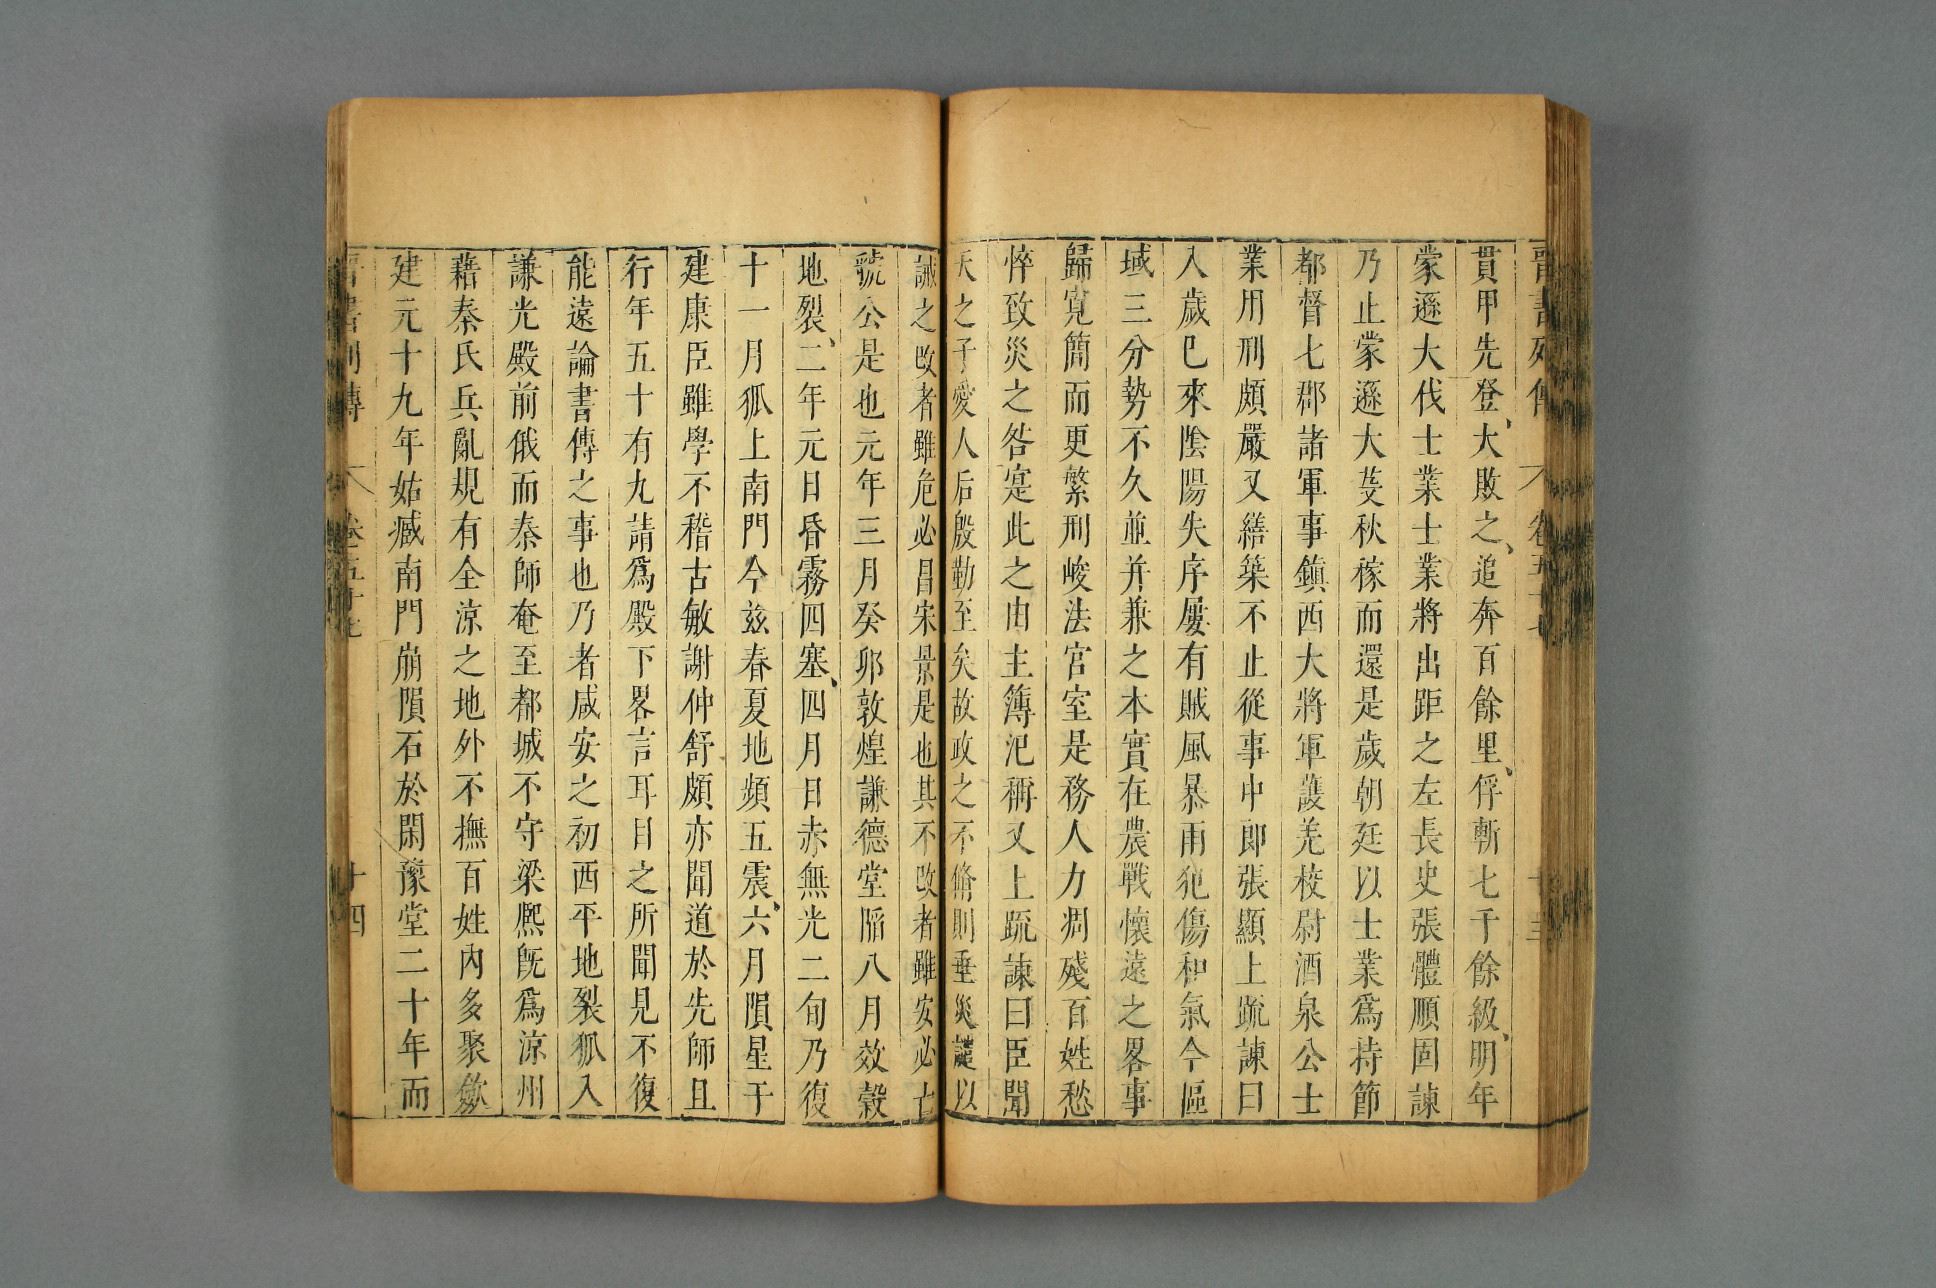 晉書列傳 卷五十七 十三
貫甲先登大敗之追奔百餘里俘斬七千餘級明年
蒙遜大伐士業士業將出距之左長史張體順固諫
乃止蒙遜大芟秋稼而還是歲朝廷以士業爲持節
都督七郡諸軍事鎮西大將軍護羌校尉酒泉公士
業用刑頗嚴又繕築不止從事中郎張顯上疏諫曰
入歲已來陰陽失序屢有賊風暴雨犯傷和氣今區
域三分勢不久並并兼之本實在農戰懷遠之畧事
歸寬簡而更繁刑峻法宮室是務人力凋殘百姓愁
悴致災之咎寔此之由主簿氾稱又上疏諫曰臣聞
天之子愛人后殷勤至矣故政之不脩則垂災譴以
誡之改者雖危必昌宋景是也其不改者雖安必亡
虢公是也元年三月癸卯敦煌謙德堂陷八月效穀
地裂二年元日昏霧四塞四月日赤無光二旬乃復
十一月狐上南門今茲春夏地頻五震六月隕星于
建康臣雖學不稽古敏謝仲舒頗亦聞道於先師且
行年五十有九請爲殿下畧言耳目之所聞見不復
能遠論書傳之事也乃者咸安之初西平地裂狐入
謙光殿前俄而秦師奄至都城不守梁熈旣爲涼州
藉秦氏兵亂規有全涼之地外不撫百姓內多聚斂
建元十九年姑臧南門崩隕石於閑豫堂二十年而
晉書列傳 卷五十七 十四